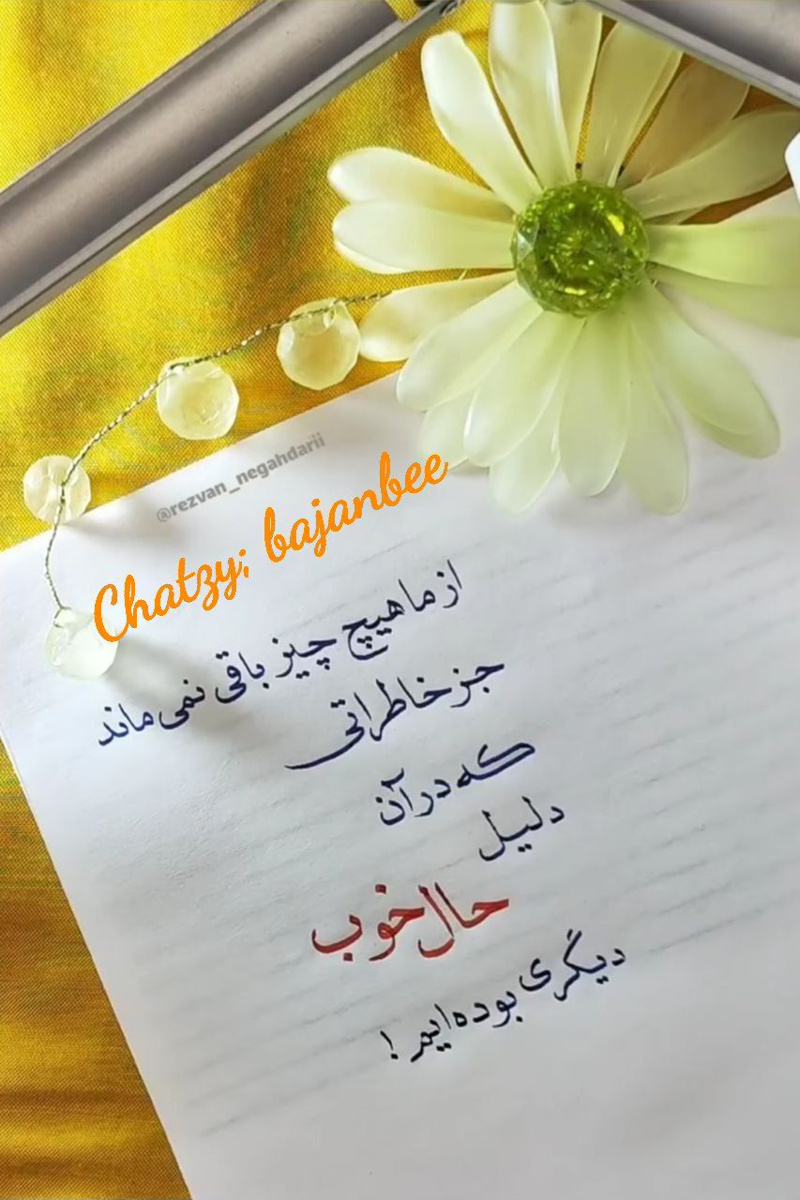 @rezvan_negahdarii
Chatzy; bajanbee
از ما هیچ چیز باقی نمی‌ماند
جز خاطراتی
که در آن
دلیل
حال خوب
دیگری بوده‌ایم!